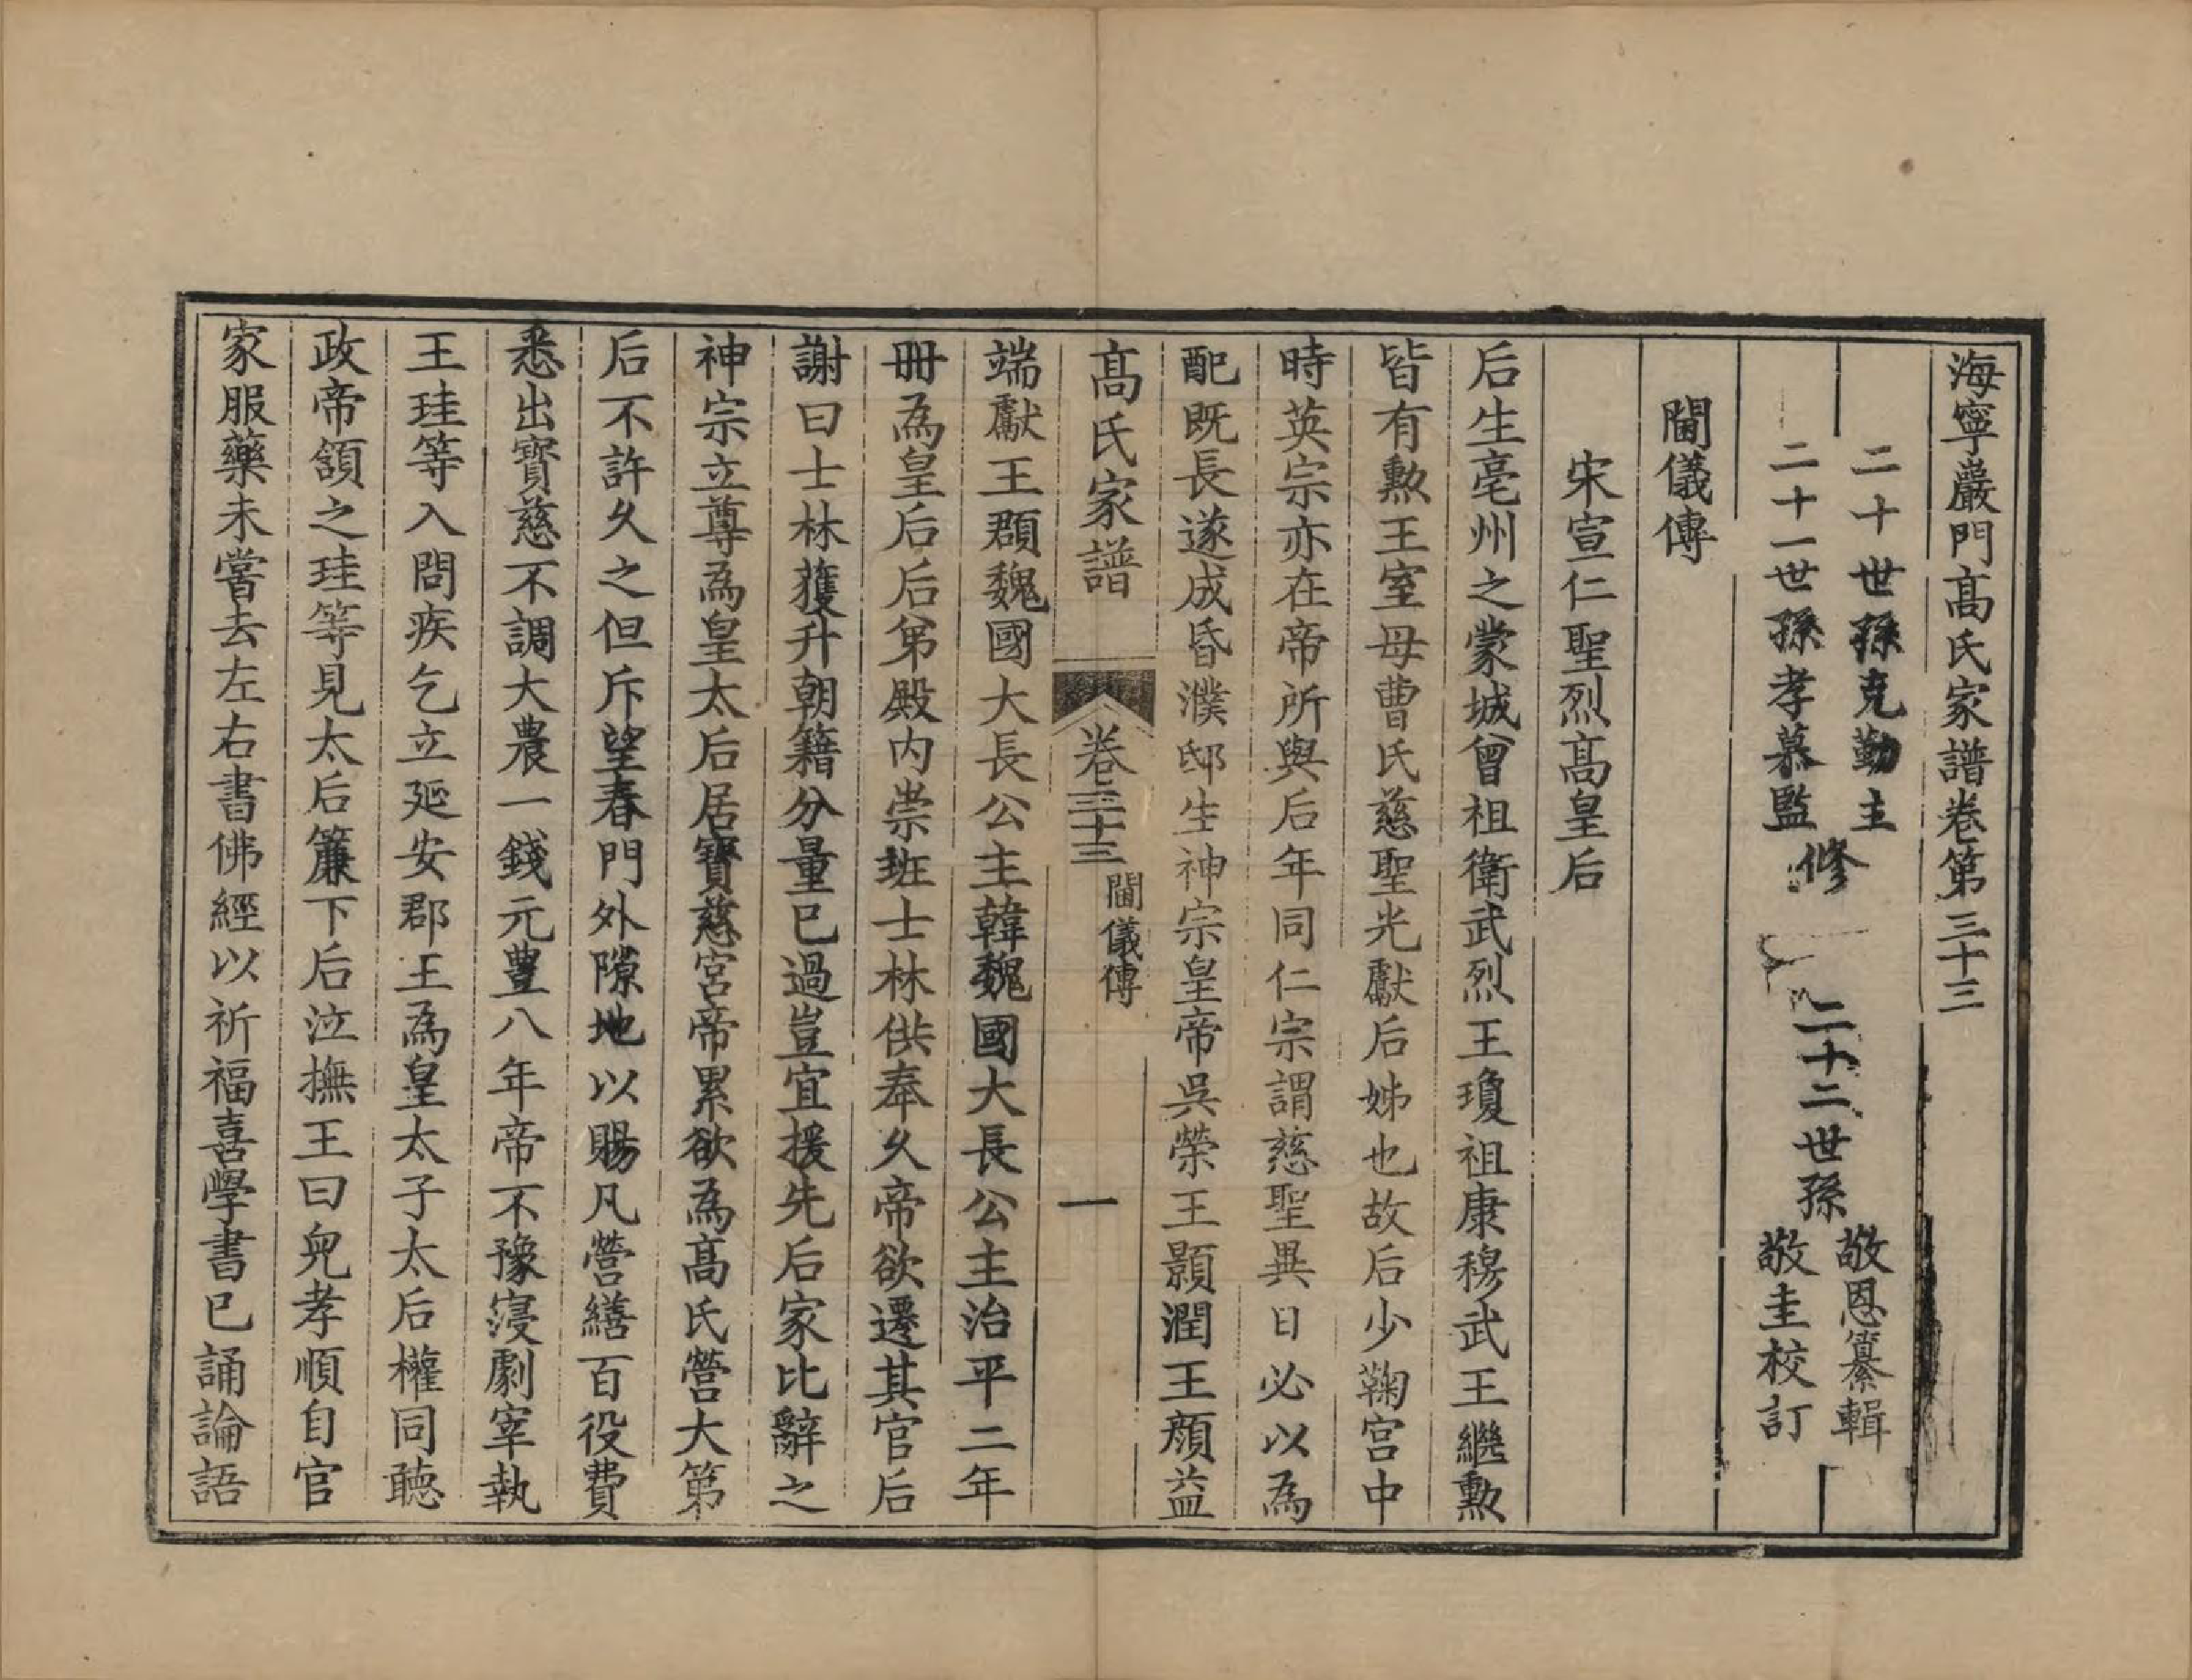 海寧嚴門高氏家譜卷第三十三
二十世孫克勤主
二十一世孫孝慕監
修
二十二世孫
敬恩纂輯
敬圭校訂
閫儀傳
宋宣仁聖烈高皇后
后生亳州之蒙城曾祖衛武烈王瓊祖康穆武王繼勲
皆有勲王室母曹氏慈聖光獻后姊也故后少鞠宮中
時英宗亦在帝所與后年同仁宗謂慈聖異日必以為
配既長遂成昏濮邸生神宗皇帝吳榮王顥潤王顏益
高氏家譜
卷三十三
閫儀傳
一
端獻王頵魏國大長公主韓魏國大長公主治平二年
冊為皇后后弟殿內崇班士林供奉久帝欲遷其官后
謝曰士林獲升朝籍分量已過豈宜援先后家比辭之
神宗立尊為皇太后居寶慈宮帝累欲為高氏營大第
后不許久之但斥望春門外隙地以賜凡營繕百役費
悉出寶慈不調大農一錢元豊八年帝不豫寖劇宰執
王珪等入問疾乞立延安郡王為皇太子太后權同聽
政帝頷之珪等見太后簾下后泣撫王曰兒孝順自官
家服藥未嘗去左右書佛經以祈福喜學書已誦論語